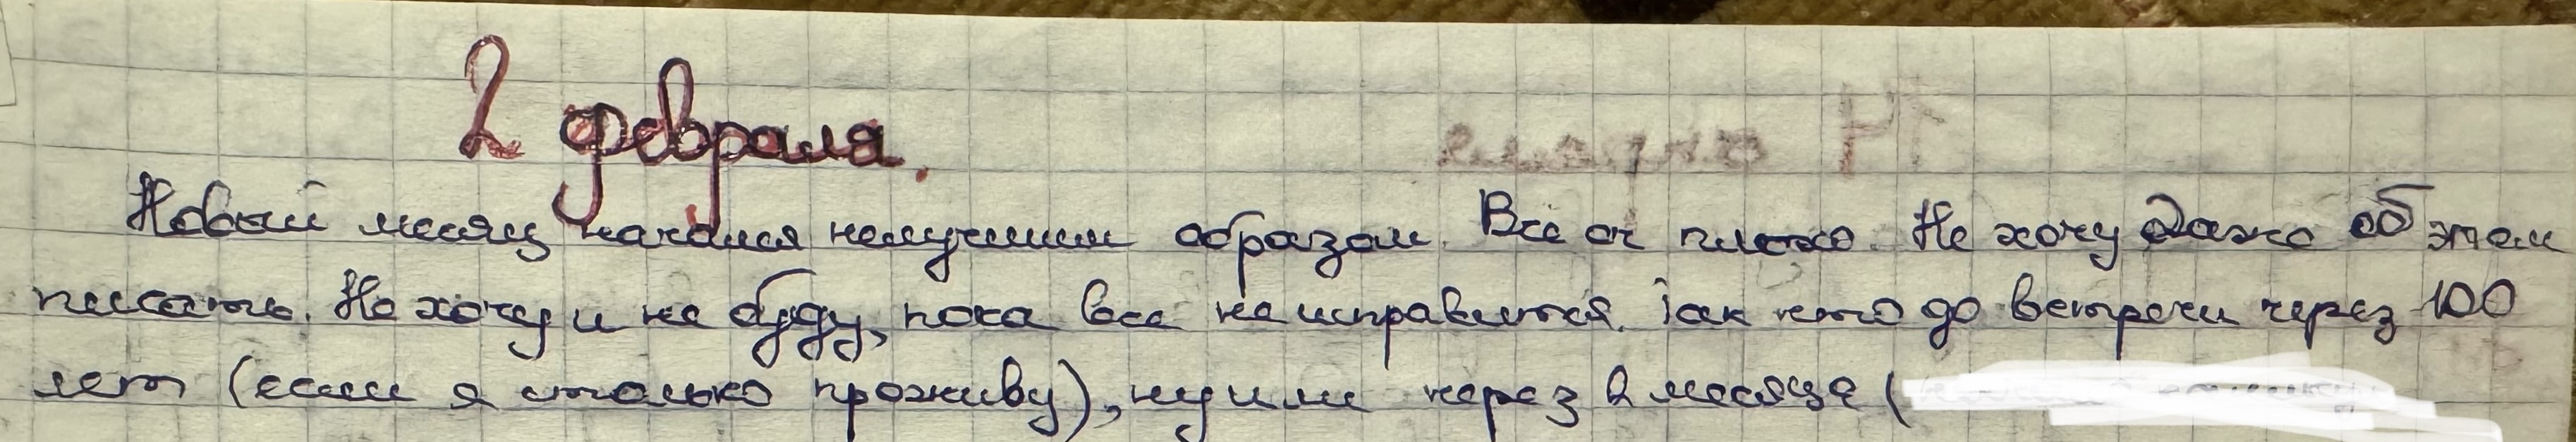 2 февраля.
Новый месяц начался ненлучшим образом. Всё оч плохо. Не хочу даже об этом
писать. Не хочу и не буду, пока все не исправится. Так что до встречи через 100
лет (если я столько проживу), ну или через 2 месяца (